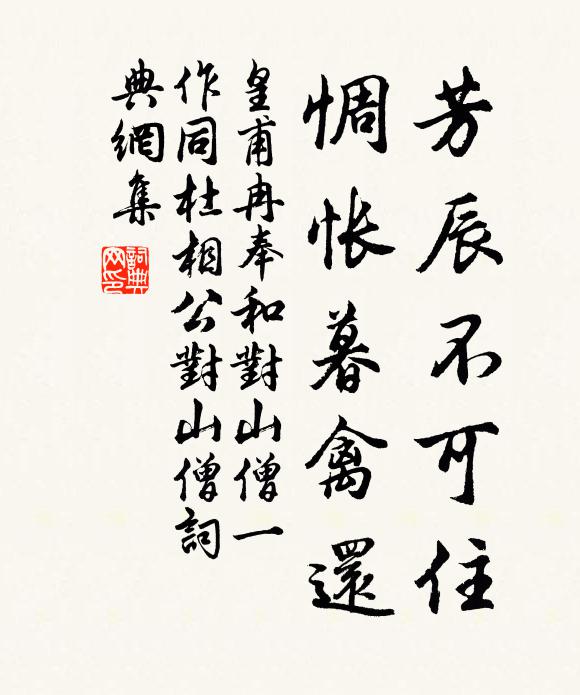 芳辰不可住
惆怅暮禽還
皇甫冉奉和對山僧一
作同杜相公對山僧詞
典網集
詞典
网印